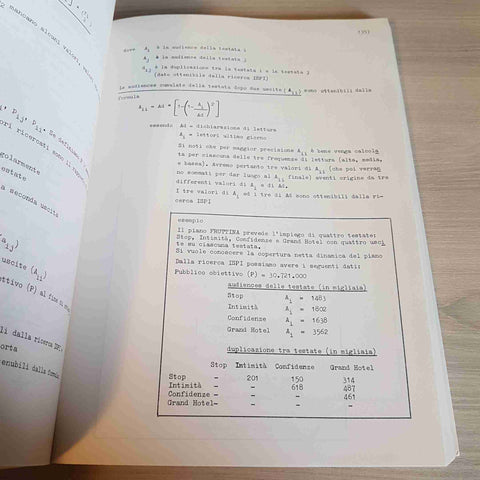 mancano, alcuni valori,
P_i, P_j, P_ii. Se
golarmente
estate
a seconda uscita
(a_ij)
uscite (A_ij)
ettivo (P) al fine di
ili dalla ricerca ISPI,
orta
tenubili dalla formula
(35)
dove A_i è la audience della testata i
A_j è la audience della testata j
A_ij è la duplicazione tra la testata i e la testata j
(dato ottenibile dalla ricerca ISPI)
le audiences cumulate della testata dopo due uscite (A_ii) sono ottenibili dalla
formula
A_ii = Ad * [1-(1- A_i/Ad)^2]
essendo Ad = dichiarazione di lettura
A_i = lettori ultimo giorno
Si noti che per maggior precisione A_ii è bene venga calcola
ta per ciascuna delle tre frequenze di lettura (alta, media,
e bassa). Avremo pertanto tre valori di A_ii (che poi verran
no sommati per dar luogo al A_ii finale) aventi origine da tre
differenti valori di A_i e di Ad.
I tre valori di A_i ed i tre di Ad sono ottenibili dalla ri-
cerca ISPI
esempio
Il piano FRUTTINA prevede l'impiego di quattro testate:
Stop, Intimità, Confidenze e Grand Hotel con quattro usci
te su ciascuna testata.
Si vuole conoscere la copertura netta dinamica del piano
Dalla ricerca ISPI possiamo avere i seguenti dati:
Pubblico obiettivo (P) = 30.721.000
audiences delle testate (in migliaia)
Stop A_i = 1483
Intimità A_i = 1802
Confidenze A_i = 1638
Grand Hotel A_i = 3562
duplicazione tra testate (in migliaia)
Stop Intimità Confidenze Grand Hotel
Stop - 201 150 314
Intimità - - 618 487
Confidenze - - - 461
Grand Hotel- - - -